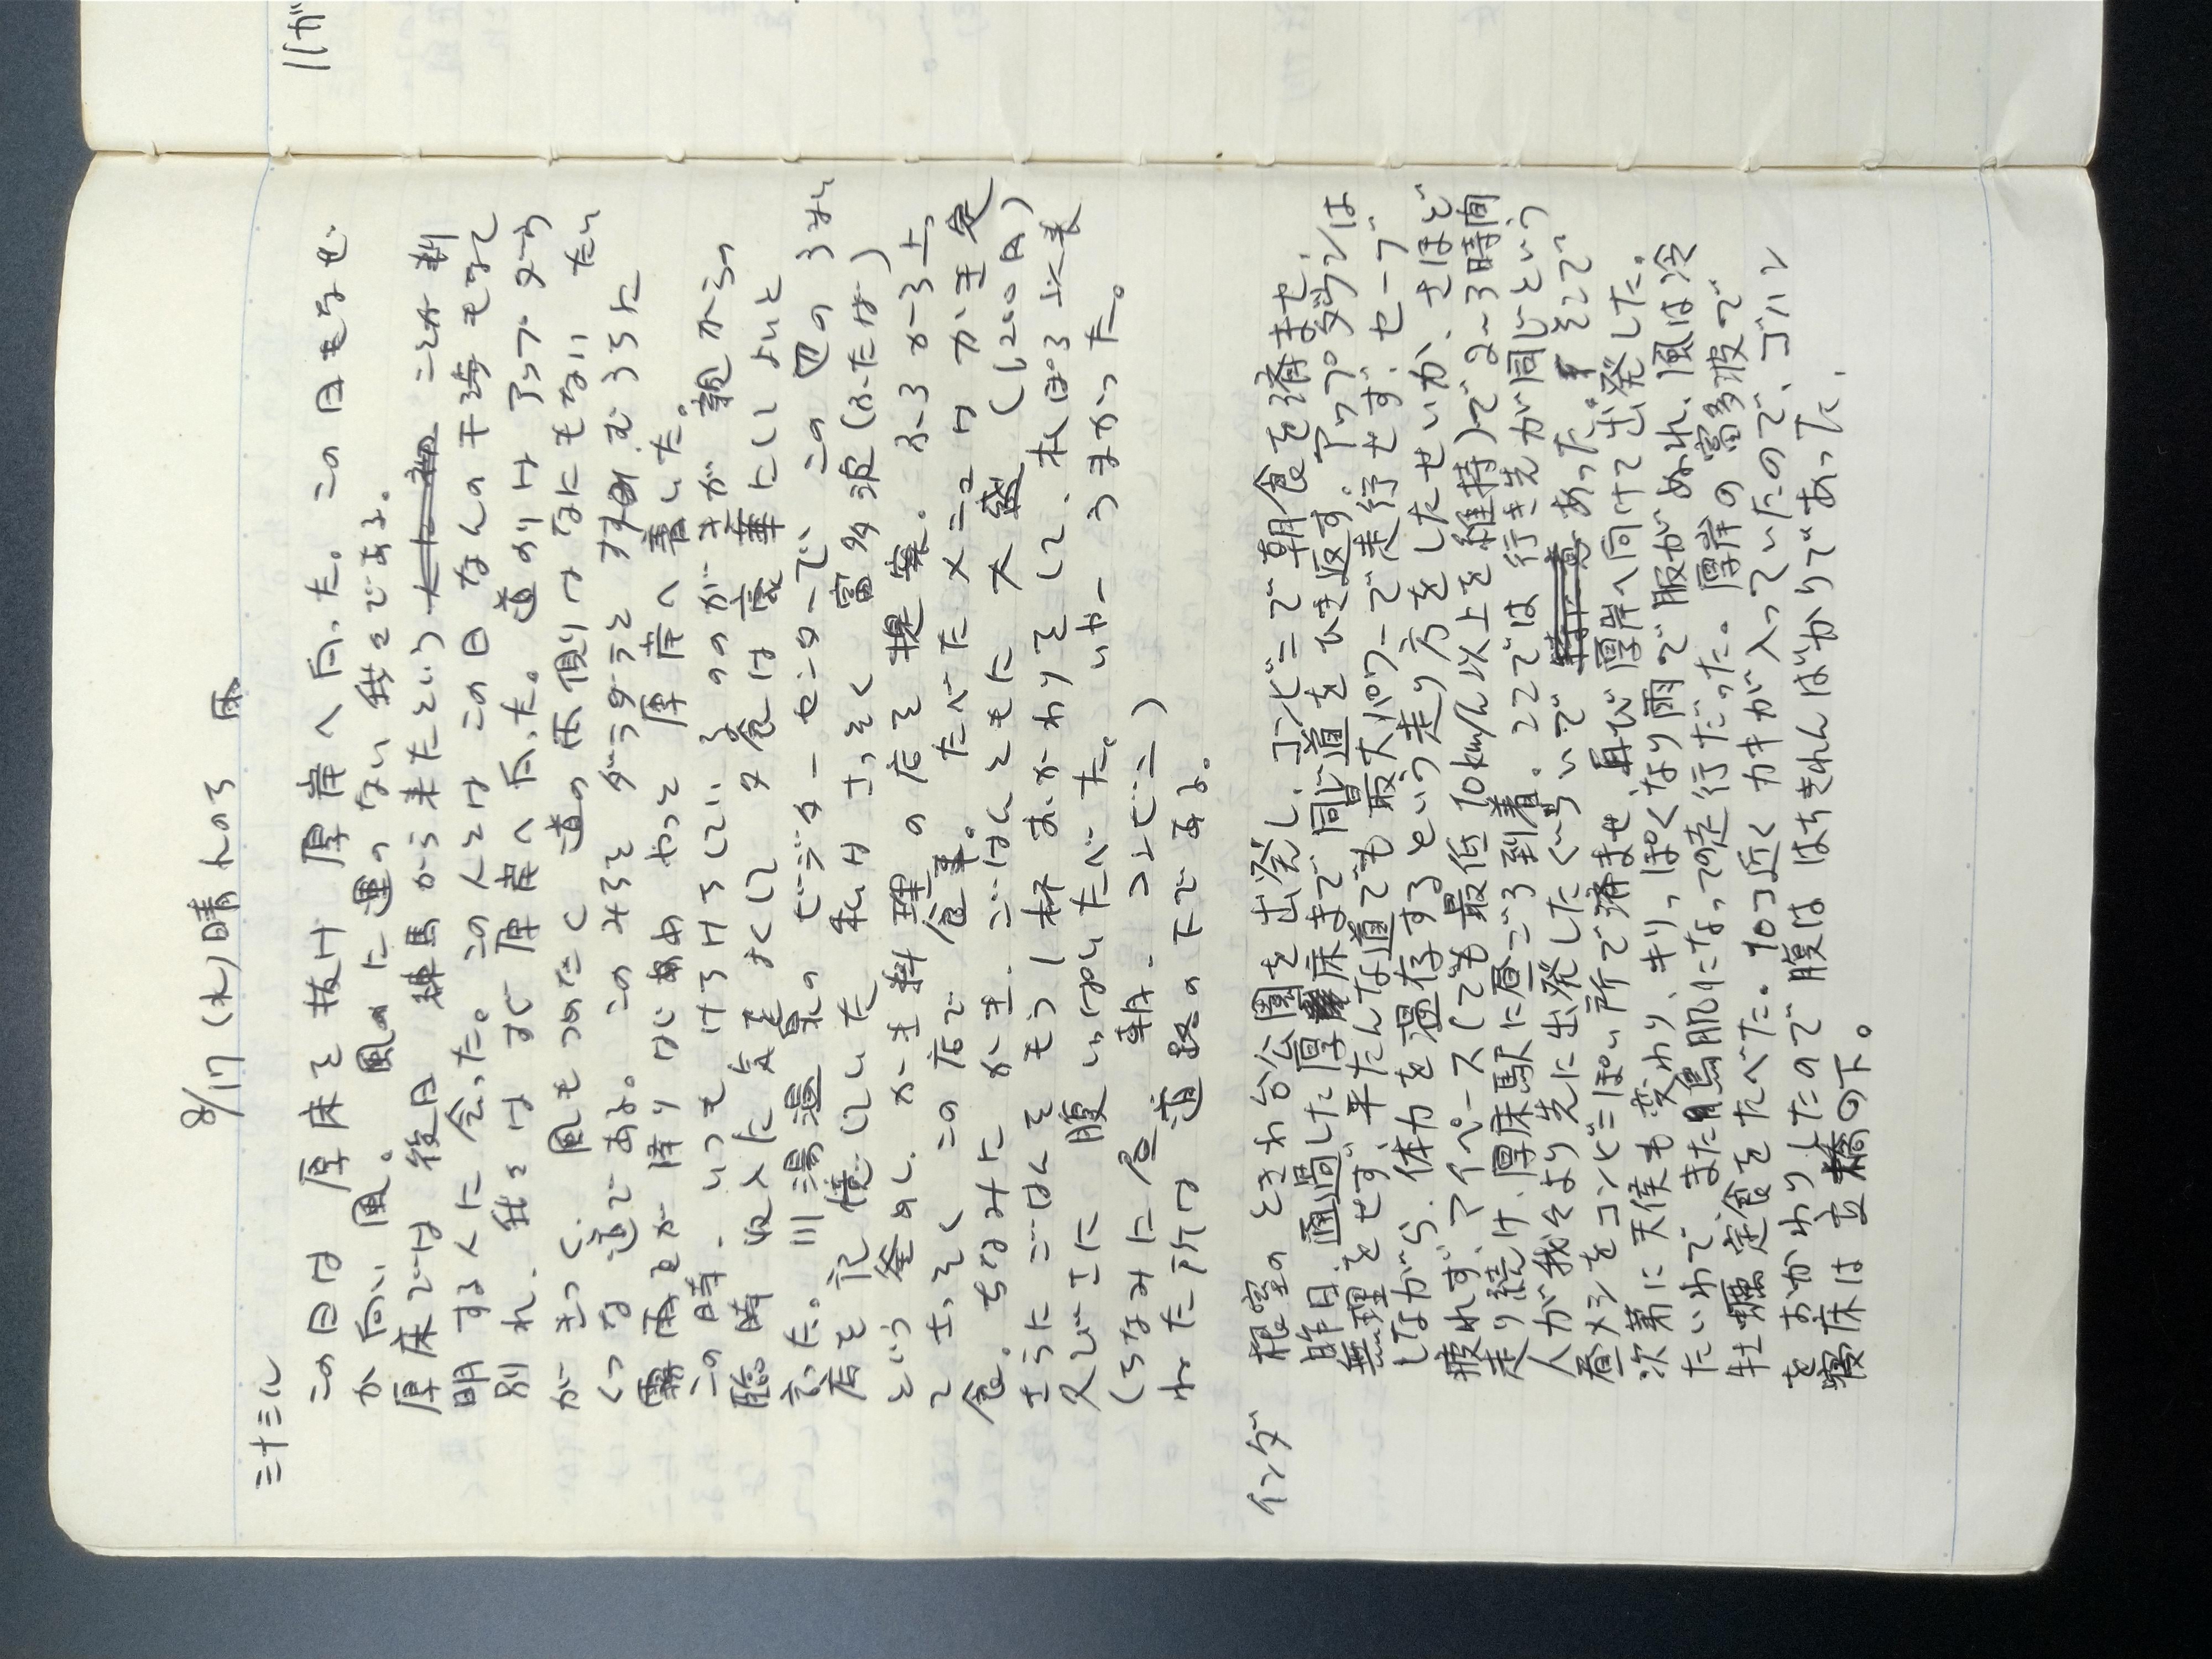 8/17(水)晴 のち 雨
ミナミル
この日は 厚床を抜け 厚岸へ向った。この日もなぜ
か向い風。風のに運のない我々である。
厚床では 後日 練馬から来たという ことが判
明する人に会った。この人とは この日なんの干渉もなく
別れ、我々は すぐ 厚岸へ向った。道のりは アップダウ
ンがきつく、風もつめたく 道の両側は なにもない たい
くつな道である。この みちを ダラダラと すすむうちに
霧雨とか 降りはじめ やっと 厚岸へ着いた。
この時、いつも けちけちしている のが 親からの
臨時収入に 気をよくして 夕食は 豪華にしよいと
言った。川湯温泉の ビジターセンターで、この辺の うまい
店を 記憶していた 私は さっそく 富多波(ふたば)
という 釜めし、かき料理の店を 提案。ふうふう上っ
て さっそく この店で 食事。たべたメニューは かき定
食。ちなみに かき、ごはんともに 大盛 (1200円)
さらに ごはんを もう1杯 おかわりをして、
又ひさに 腹いっぱいたべた。いやー うまかった。
(ちなみに 昼、朝、コンビニ)
ねた所は 道路の下である。
インダ
根室の ときわ台公園を出発し、コンビニで朝食を済ませ、
昨日、通過した厚床まで同じ道をひき返す。アップダウンは
無理をせず、平たんな道でも最大パワーで走行せず、セーブ
しながら、体力を温存するという走り方をしたせいか、さほど
疲れず、マイペース(でも最低10km/h以上を維持)で2〜3時間
走り続け、厚床駅に昼ごろ到着。ここでは 行き先が同じという
人が我々より先に出発したぐらいで あった。そして
昼メシをコンビニぽい所で済ませ、再び厚岸へ向けて出発した。
次第に天候も変わり、キリっぽくなり雨で服がぬれ、風は冷
たいわで、また鳥肌になっての走行だった。厚岸の富多波で
牡蠣定食をたべた。10コ近くカキが入っていたので、ゴハン
をおかわりしたので腹ははちきれんばかりであった。
寝床は 立橋の下。